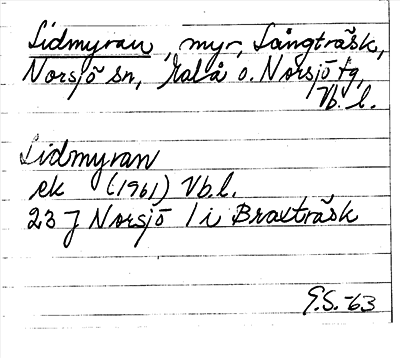 Lidmyran, myr, Långträsk,
Norsjö sn, Malå o. Norsjö tg,
Vb. l.
Lidmyran
ek (1961) Vb.l.
23 J Norsjö 1 i Braxträsk
G.S.-63